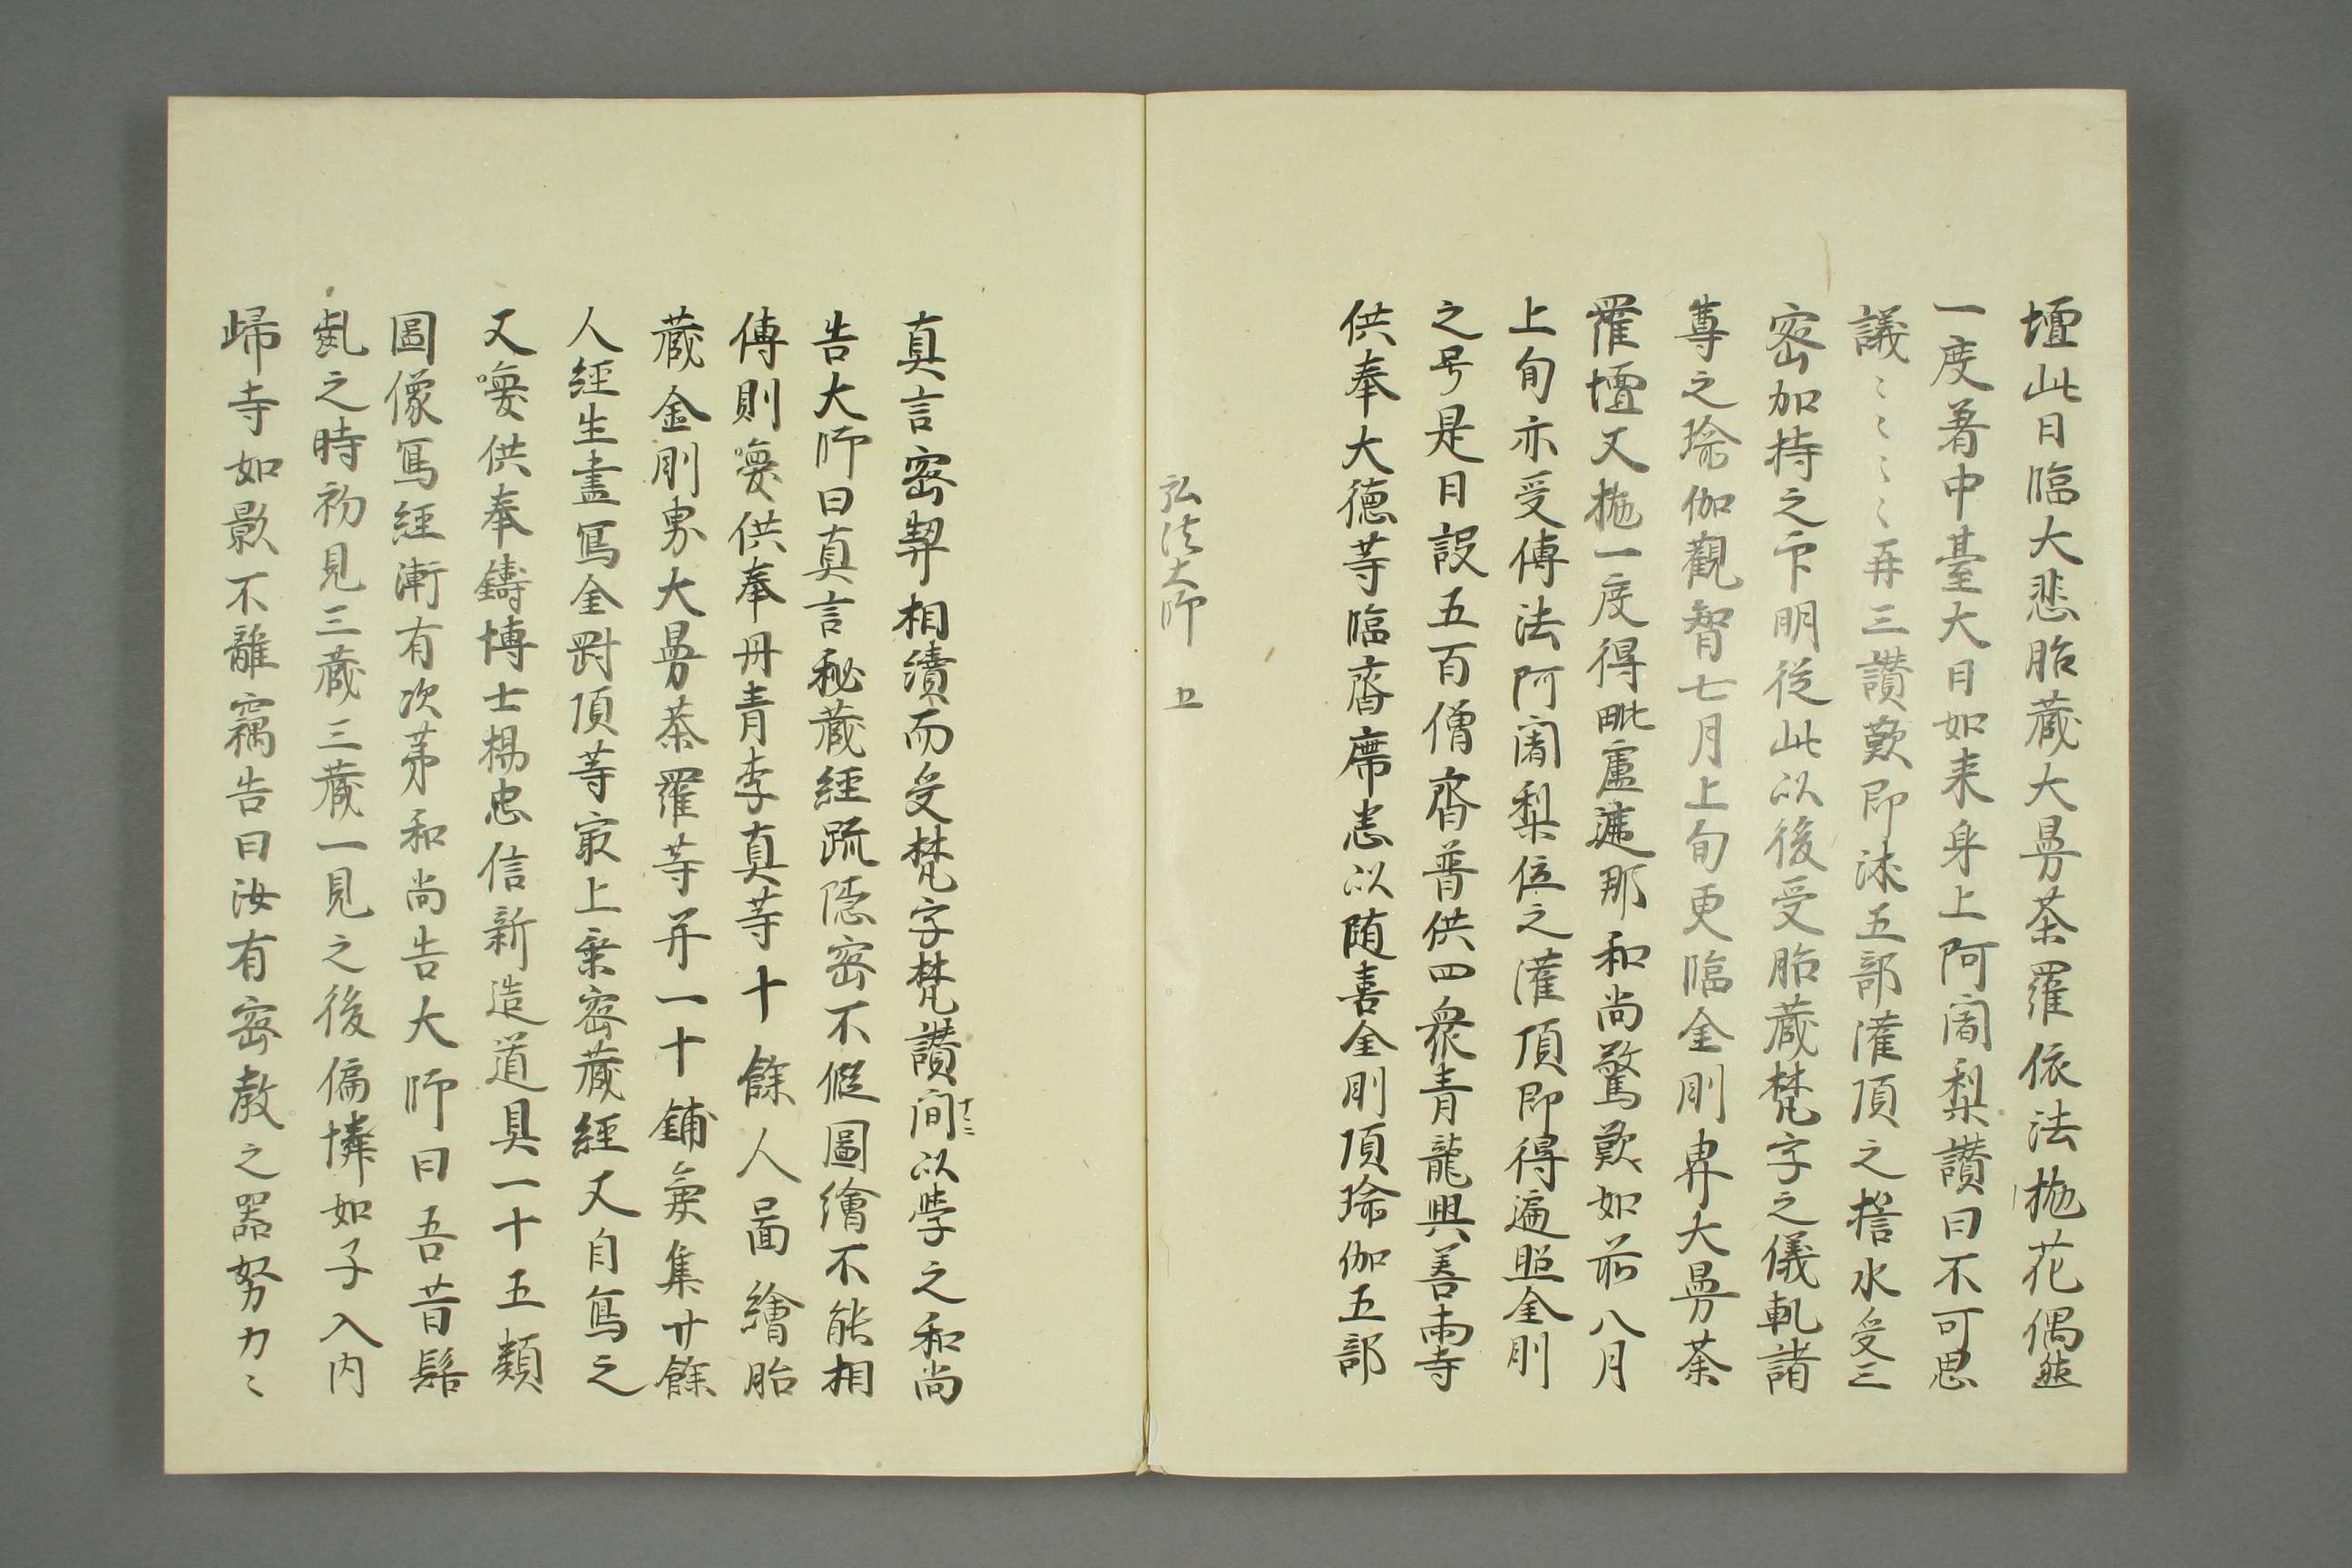 壇此日臨大悲胎蔵大曼荼羅依法抛花偶然
一度着中臺大日如来身上阿闍梨讃曰不可思
議〻〻〻〻再三讃歎即沐五部灌頂之誓水受三
密加持之印明従此以後受胎蔵梵字之儀軌諸
尊之瑜伽觀智七月上旬更臨金剛界大曼荼
羅壇又抛一度得毗盧遮那和尚驚歎如前八月
上旬亦受傳法阿闍梨位之灌頂即得遍照金剛
之号是日設五百僧齋普供四衆青龍興善両寺
供奉大德等臨齋席悉以随喜金剛頂瑜伽五部
弘法大師 上
真言密契相續而受梵字梵讃间以學之和尚
告大師曰真言秘蔵經疏隱密不假圖繪不能相
傳則喚供奉丹青李真等十餘人啚繪胎
蔵金剛界大曼荼羅等并一十鋪兼集廿餘
人經生書寫金剛頂等最上乗密蔵經又自寫之
又喚供奉鑄博士楊忠信新造道具一十五類
圖像寫經漸有次第和尚告大師曰吾昔髫
齔之時初見三蔵三蔵一見之後偏憐如子入内
歸寺如影不離竊告曰汝有密教之器努力〻